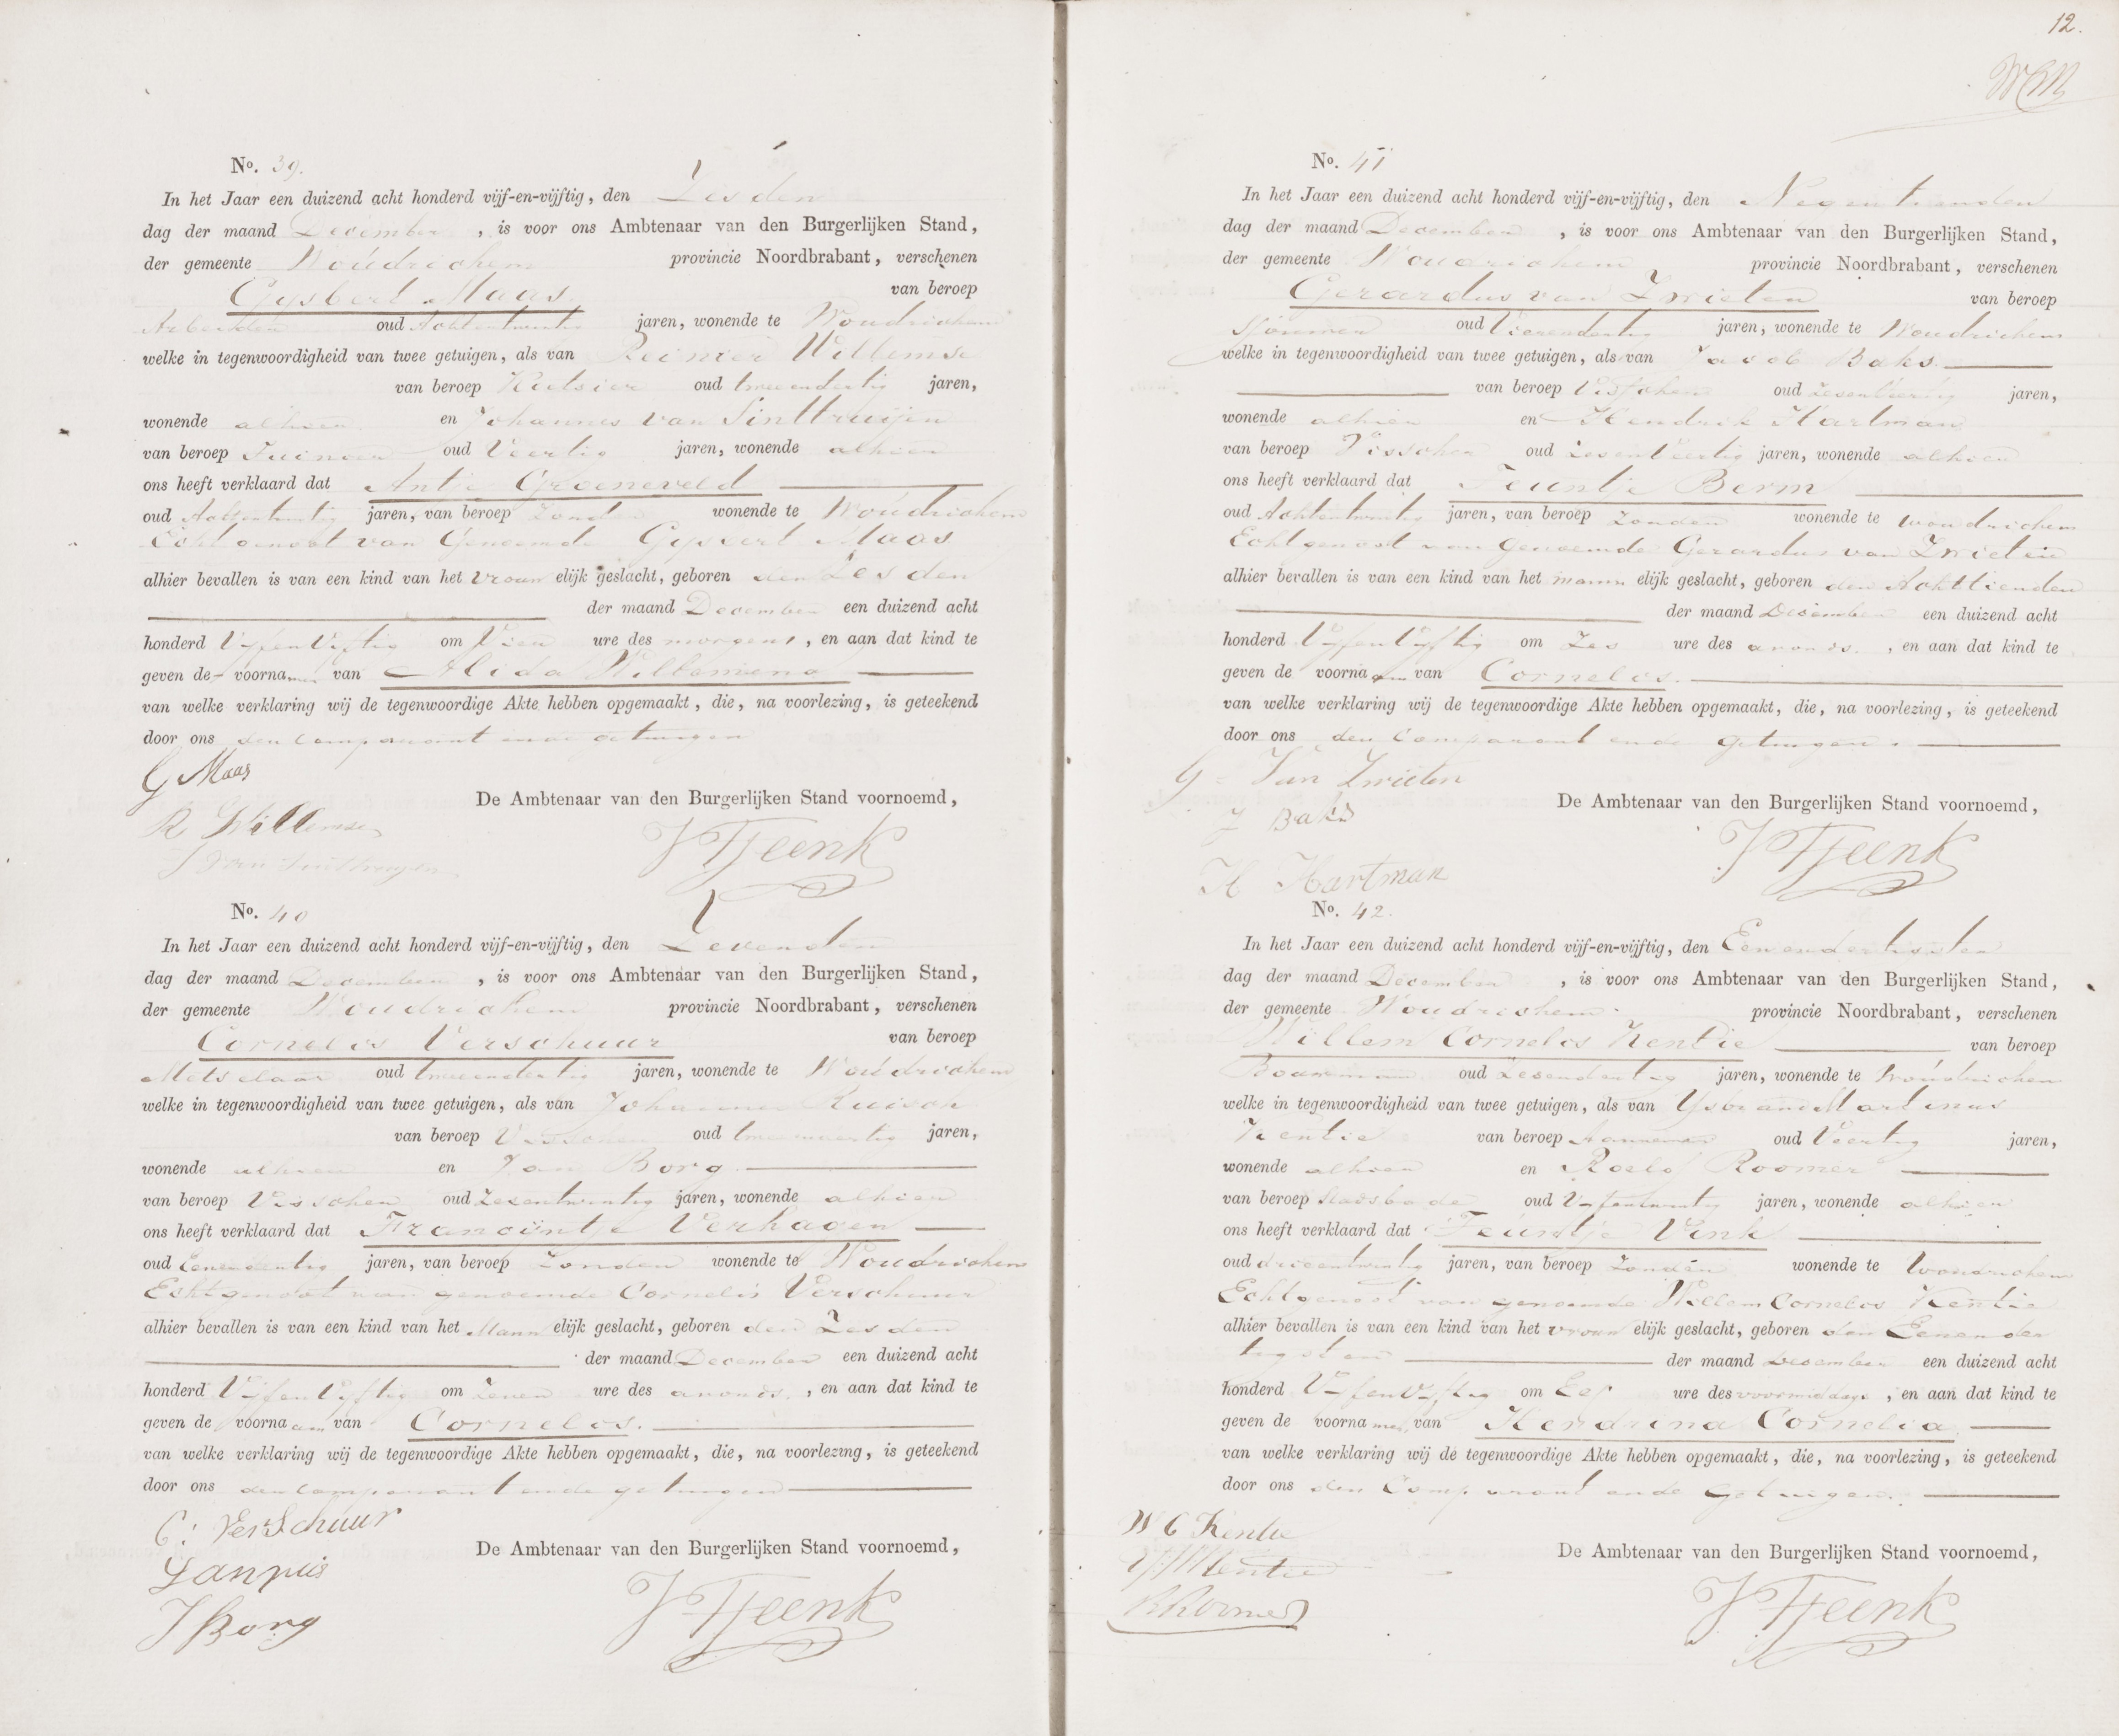 No. 39.
In het Jaar een duizend acht honderd vijf-en-vijftig, den Zesden
dag der maand December, is voor ons Ambtenaar van den Burgerlijken Stand,
der gemeente Woudrichem provincie Noordbrabant, verschenen
Gysbert Maas van beroep
Arbeider oud Achtentwintig jaren, wonende te Woudrichem
welke in tegenwoordigheid van twee getuigen, als van Reinier Willemse
van beroep oud tweeendertig jaren,
wonende alhier en Johannes van Sinttruijen
van beroep oud Veertig jaren, wonende alhier
ons heeft verklaard dat Antje Groeneveld
oud Achtentwintig jaren, van beroep Zonder wonende te Woudrichem
Echtgenoot van Genoemde Gysbert Maas
alhier bevallen is van een kind van het vrouw elijk geslacht, geboren den Zesden
der maand December een duizend acht
honderd Vyfenvyftig om Vier ure des morgens, en aan dat kind te
geven de voornamen van Alida Willemena
van welke verklaring wij de tegenwoordige Akte hebben opgemaakt, die, na voorlezing, is geteekend
door ons den Comparant ende getuigen
G Maas
De Ambtenaar van den Burgerlijken Stand voornoemd,
R Willemse
J Tjeenk
No. 40
In het Jaar een duizend acht honderd vijf-en-vijftig, den Zevenden
dag der maand December, is voor ons Ambtenaar van den Burgerlijken Stand,
der gemeente Woudrichem provincie Noordbrabant, verschenen
Cornelis Verschuur van beroep
Metselaar oud tweeendertig jaren, wonende te Woudrichem
welke in tegenwoordigheid van twee getuigen, als van Johannes
van beroep Visscher oud jaren,
wonende alhier en Jan Borg
van beroep Visscher oud Zesentwintig jaren, wonende alhier
ons heeft verklaard dat Francyntje Verhagen
oud Eenendertig jaren, van beroep Zonder wonende te Woudrichem
Echtgenoot van genoemde Cornelis Verschuur
alhier bevallen is van een kind van het Mann elijk geslacht, geboren den Zesden
der maand December een duizend acht
honderd Vyfenvyftig om Zeven ure des avonds, en aan dat kind te
geven de voornaam van Cornelis.
van welke verklaring wij de tegenwoordige Akte hebben opgemaakt, die, na voorlezing, is geteekend
door ons den Comparant ende getuigen
C: Verschuur
De Ambtenaar van den Burgerlijken Stand voornoemd,
J Borg
J Tjeenk
12.
No. 41
In het Jaar een duizend acht honderd vijf-en-vijftig, den Negentienden
dag der maand December, is voor ons Ambtenaar van den Burgerlijken Stand,
der gemeente Woudrichem provincie Noordbrabant, verschenen
Gerardus van Zwieten van beroep
oud Vierendertig jaren, wonende te Woudrichem
welke in tegenwoordigheid van twee getuigen, als van Jacob Baks.
van beroep Visscher oud jaren,
wonende alhier en Hendrik Hartman
van beroep Visscher oud Zesenveertig jaren, wonende alhier
ons heeft verklaard dat Teuntje Berm
oud Achtentwintig jaren, van beroep Zonder wonende te Woudrichem
Echtgenoot van genoemde Gerardus van Zwieten
alhier bevallen is van een kind van het mann elijk geslacht, geboren den Achttienden
der maand December een duizend acht
honderd Vyfenvyftig om Zes ure des avonds., en aan dat kind te
geven de voornaam van Cornelis.
van welke verklaring wij de tegenwoordige Akte hebben opgemaakt, die, na voorlezing, is geteekend
door ons den Comparant ende getuigen.
G Van Zwieten
De Ambtenaar van den Burgerlijken Stand voornoemd,
J Baks
J Tjeenk
H Hartman
No. 42.
In het Jaar een duizend acht honderd vijf-en-vijftig, den Eenendertigsten
dag der maand December, is voor ons Ambtenaar van den Burgerlijken Stand,
der gemeente Woudrichem provincie Noordbrabant, verschenen
Willem Cornelis Kentie van beroep
Bouwman oud Zesendertig jaren, wonende te Woudrichem
welke in tegenwoordigheid van twee getuigen, als van Ysbrand Martinus
Kentie van beroep Aannemer oud Veertig jaren,
wonende alhier en Roelof Roomer
van beroep oud Vyfentwintig jaren, wonende alhier
ons heeft verklaard dat Teuntje Vink
oud drieentwintig jaren, van beroep Zonder wonende te Woudrichem
Echtgenoot van genoemde Willem Cornelis Kentie
alhier bevallen is van een kind van het vrouw elijk geslacht, geboren den Eenender
tigsten der maand December een duizend acht
honderd Vyfenvyftig om Elf ure des voormiddags, en aan dat kind te
geven de voornamen van Hendrina Cornelia
van welke verklaring wij de tegenwoordige Akte hebben opgemaakt, die, na voorlezing, is geteekend
door ons den Comparant ende getuigen.
W C Kentie
De Ambtenaar van den Burgerlijken Stand voornoemd,
Y M Kentie
R Roomer
J Tjeenk